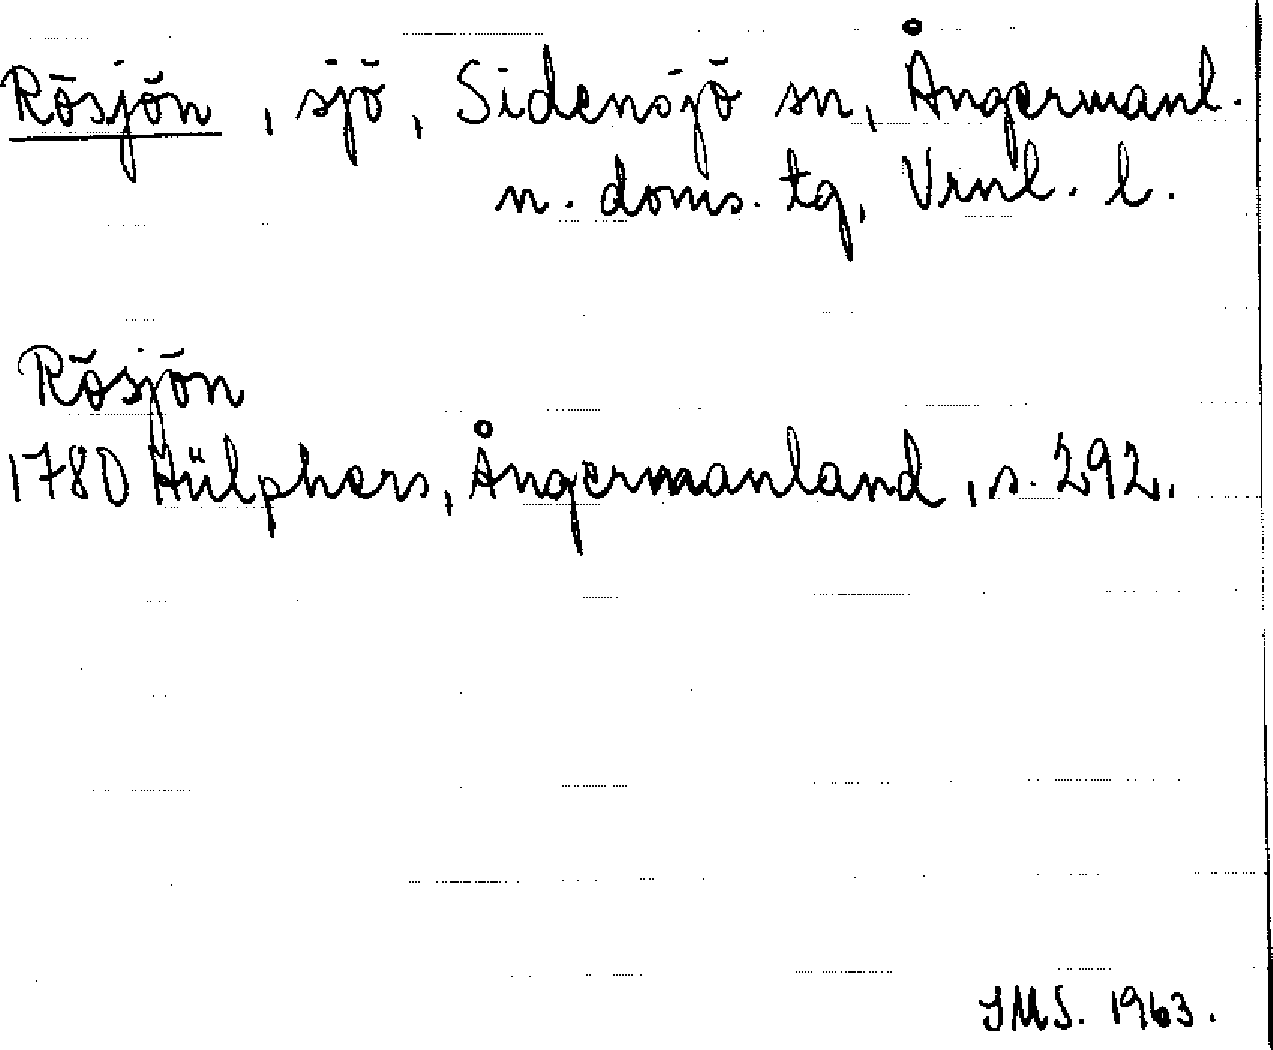 Rösjön, sjö, Sidensjö sn, Ångermanl.
n. doms. tg, Vrnl. l.
Rösjön
1780 Hülphers, Ångermanland, s. 292.
IMS. 1963.